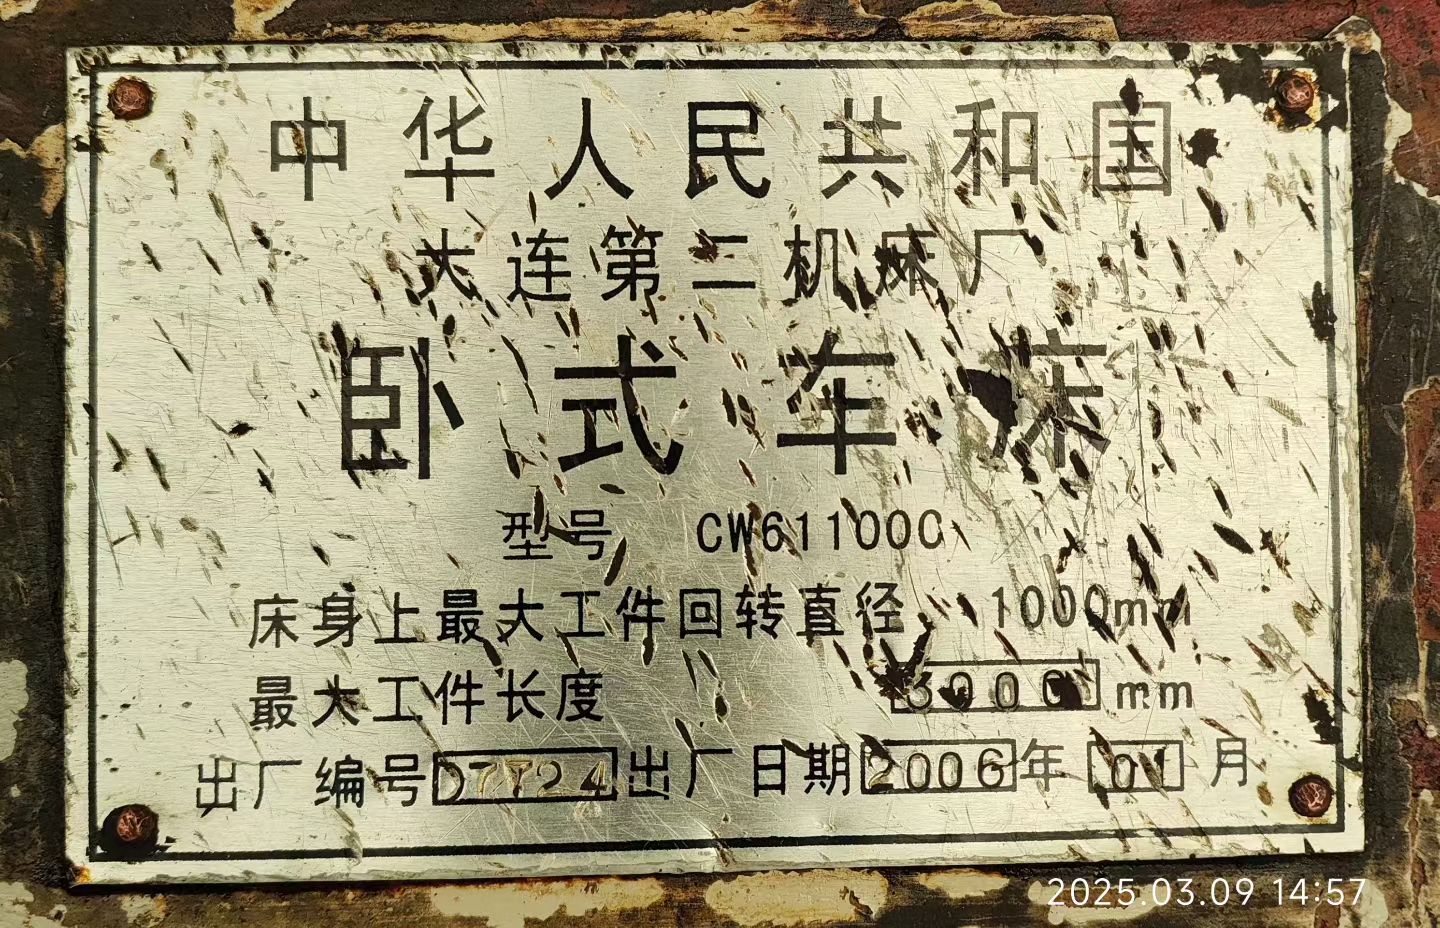 中华人民共和国
大连第二机床厂
卧式车床
型号 CW61100C
床身上最大工件回转直径 1000mm
最大工件长度 3000 mm
出厂编号 出厂日期 2006 年 01 月
2025.03.09 14:57